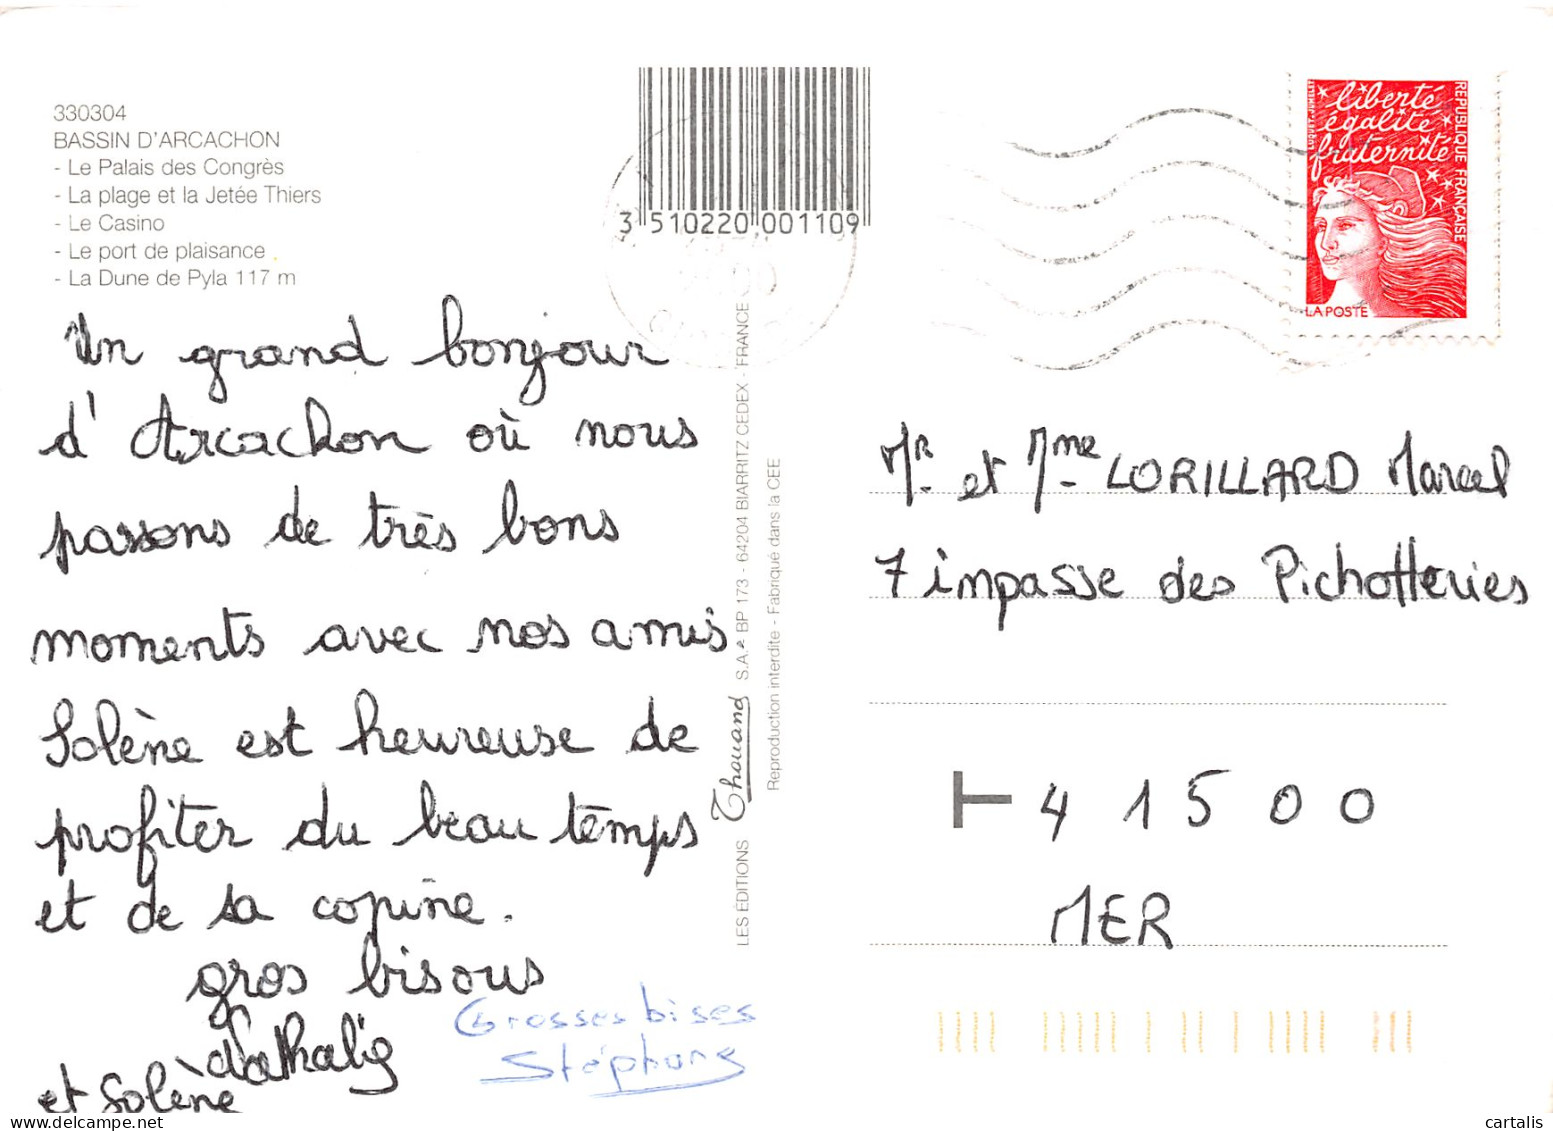 330304
BASSIN D'ARCACHON
- Le Palais des Congrès
- La plage et la Jetée Thiers
- Le Casino
- Le port de plaisance
- La Dune de Pyla 117 m
3 510220 001109
liberté
égalité
fraternité
RÉPUBLIQUE FRANÇAISE
LA POSTE
Un grand bonjour
d'Arcachon où nous
passons de très bons
moments avec nos amis
Solène est heureuse de
profiter du beau temps
et de sa copine.
gros bisous
Nathalie
et Solène
Grosses bises
Stéphane
LES ÉDITIONS Thouand S.A. - BP 173 - 64204 BIARRITZ CEDEX - FRANCE
Reproduction interdite - Fabriqué dans la CEE
Mr et Mme LORILLARD Marcel
7 impasse des Pichotteries
41500
MER
cartalis